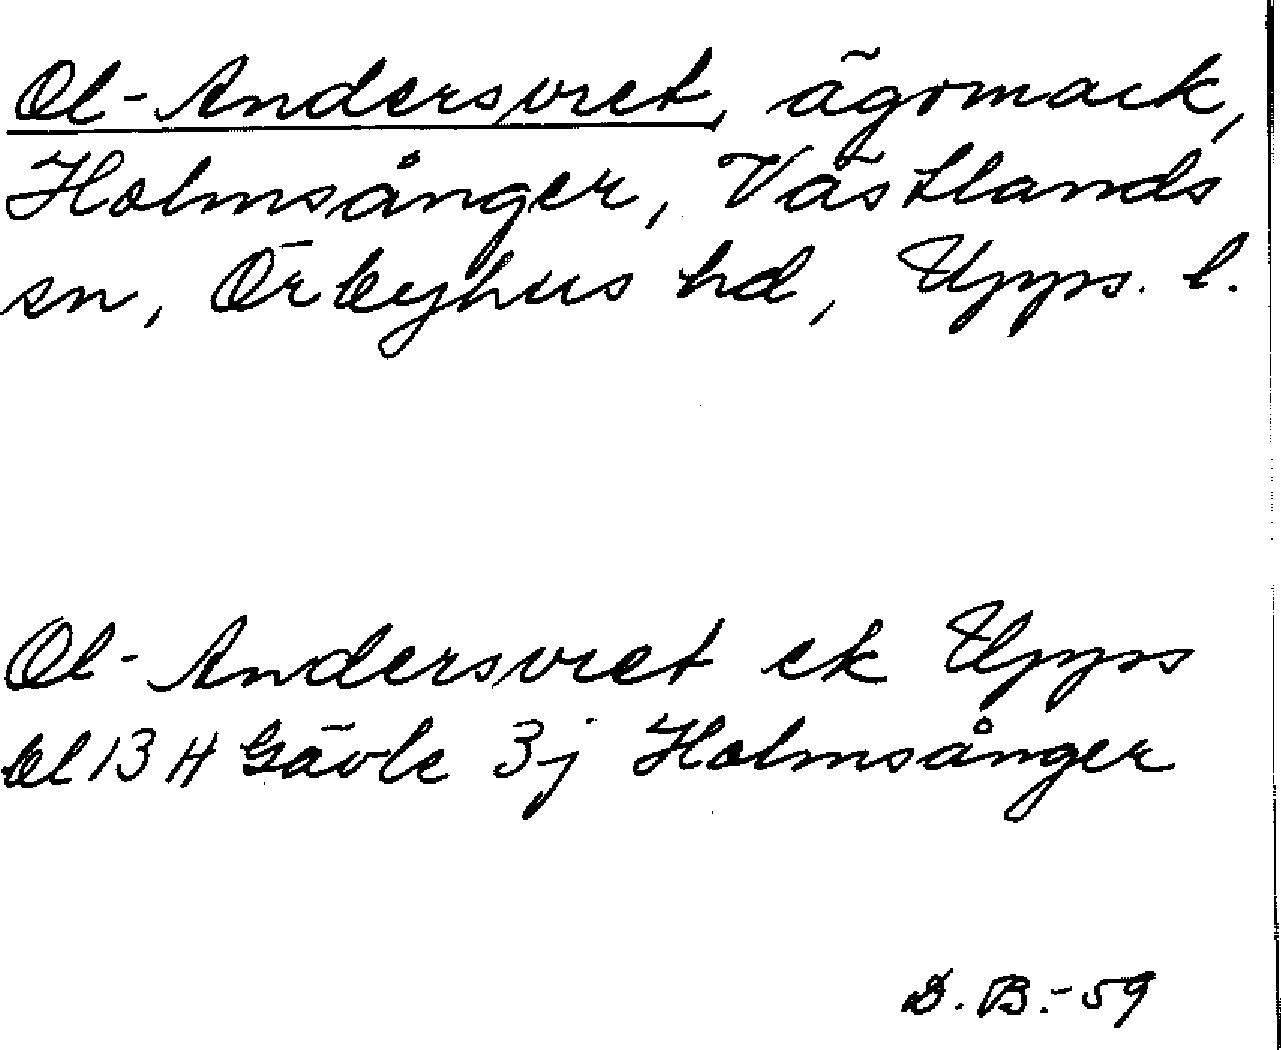 Ol-Andersvret, ägomark,
Holmsånger, Västlands
sn, Örbyhus hd, Upps. l.
Ol-Andersvret ek Upps
bl 13 H Gävle 3j Holmsånger
D. B.-59